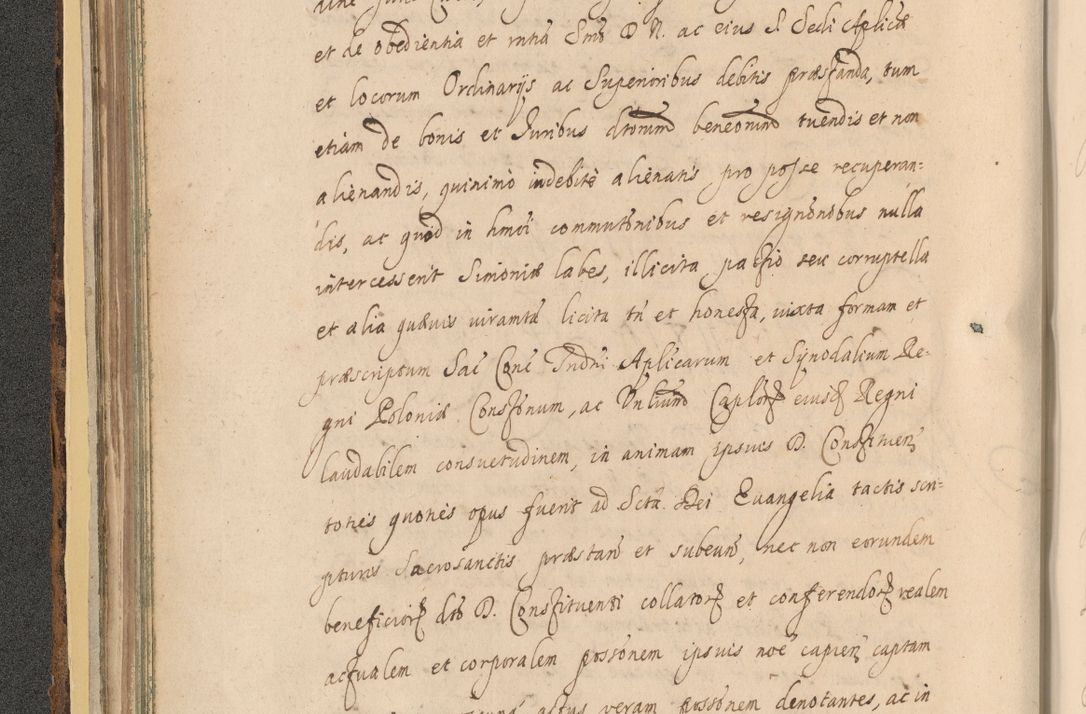 et de obedientia et rntia Smo D N. ac eius S. Sedi Aplicæ
et locorum Ordinarijs ac Superioribus debitis præstanda, tum
etiam de bonis et Juribus dtorum beneorum tuendis et non
alienandis, quinimo indebite alienatis pro posse recuperan=
dis, ac quod in hmoi commutonibus et resignonibus nulla
intercesserit Simoniæ labes, illicita pactio seu corruptella
et alia quævis iuramta licita tn et honesta, iuxta formam et
præscriptum Sac Conc Tridni Aplicarum et Synodalium Re-
gni Poloniæ Constonum, ac Capлорum eiusd Regni
laudabilem consuetudinem, in animam ipsius D. Constituen
toties quoties opus fuerit ad Scta Dei Evangelia tactis scri=
pturis Sacrosanctis præstan et subeun, nec non eorundem
beneficior dto D. Constituenti collator et conferendor realem
actualem et corporalem possonem ipsius noe capien captam
actus veram possonem denotantes, ac in